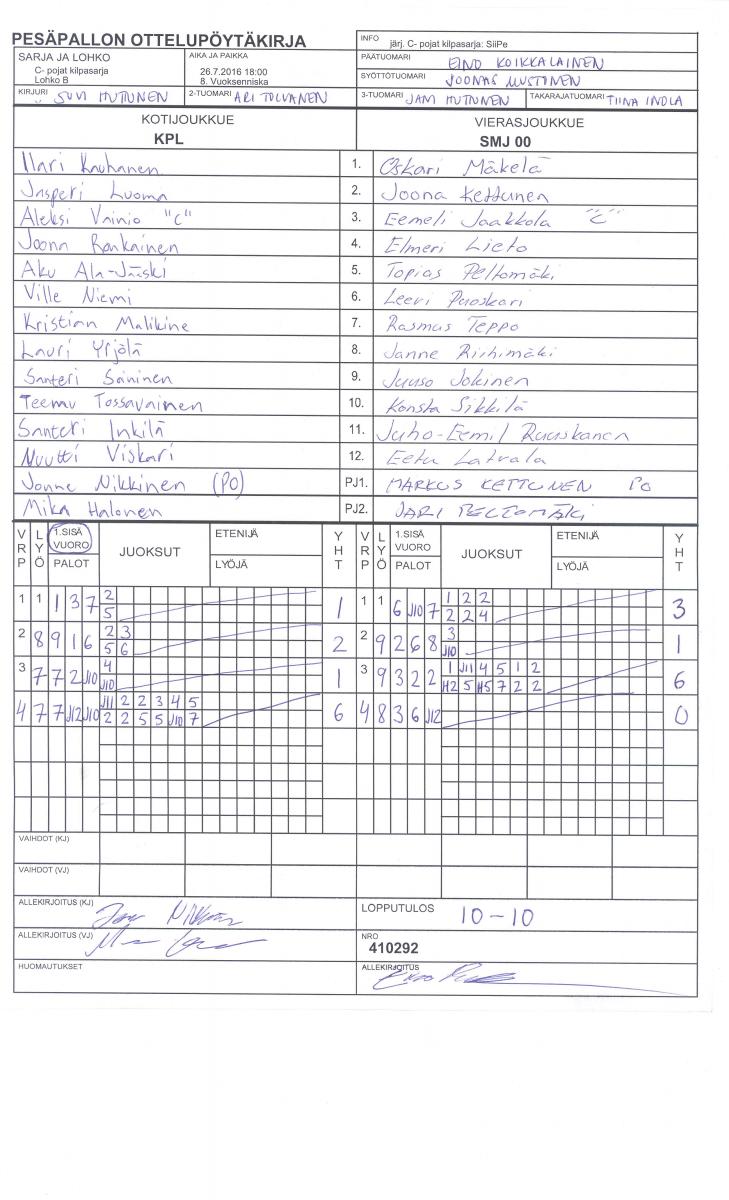 PESÄPALLON OTTELUPÖYTÄKIRJA
INFO järj. C- pojat kilpasarja: SiiPe
SARJA JA LOHKO
C- pojat kilpasarja
Lohko B
AIKA JA PAIKKA
26.7.2016 18:00
8. Vuoksenniska
PÄÄTUOMARI EINO KOIKKALAINEN
SYÖTTÖTUOMARI JOONAS MUSTONEN
KIRJURI SUVI HUTUNEN
2-TUOMARI ARI TOLVANEN
3-TUOMARI JANI HUTUNEN
TAKARAJATUOMARI TIINA INOLA
KOTIJOUKKUE
KPL
VIERASJOUKKUE
SMJ 00
Ilari Kauhanen 1. Oskari Mäkelä
Jasperi Luoma 2. Joona Kettunen
Aleksi Vainio "C" 3. Eemeli Jaakkola "C"
Joona Ronkainen 4. Elmeri Lieto
Aku Ala-Jääski 5. Topias Peltomäki
Ville Niemi 6. Leevi Puoskari
Kristian Malikine 7. Rasmus Teppo
Lauri Yrjölä 8. Janne Riihimäki
Santeri Saininen 9. Juuso Jokinen
Teemu Tossavainen 10. Konsta Sikkilä
Santeri Inkilä 11. Juho-Eemil Ruuskanen
Nuutti Viskari 12. Eetu Latvala
Jonne Nikkinen (PO) PJ1. MARKUS KETTUNEN PO
Mika Halonen PJ2. JARI PELTOMÄKI
VRP LYÖ 1.SISÄ VUORO PALOT JUOKSUT ETENIJÄ LYÖJÄ YHT
VRP LYÖ 1.SISÄ VUORO PALOT JUOKSUT ETENIJÄ LYÖJÄ YHT
1 1 1 3 7 2 1 1 1 6 J10 7 1 2 2 3
5 2 2 4
2 8 9 1 6 2 3 2 2 9 2 6 8 3 1
5 6 J10
3 7 7 2 J10 4 1 3 9 3 2 2 1 J11 4 5 1 2 6
J10 H2 5 H5 7 2 2
4 7 7 J12 J10 J11 2 2 3 4 5 6 4 8 3 6 J12 0
2 2 5 5 J10 7
VAIHDOT (KJ)
VAIHDOT (VJ)
ALLEKIRJOITUS (KJ)
LOPPUTULOS 10-10
ALLEKIRJOITUS (VJ)
NRO
410292
HUOMAUTUKSET
ALLEKIRJOITUS